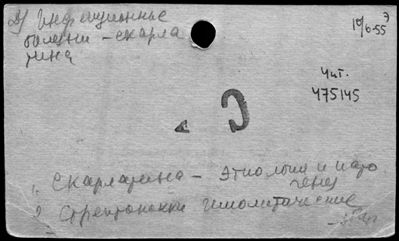 2) Инфекционные
болезни – скарла
тина
10/6-55
Чит.
475145
1. Скарлатина – Этиология и пато
генез
2. Стрептококки гемолитические